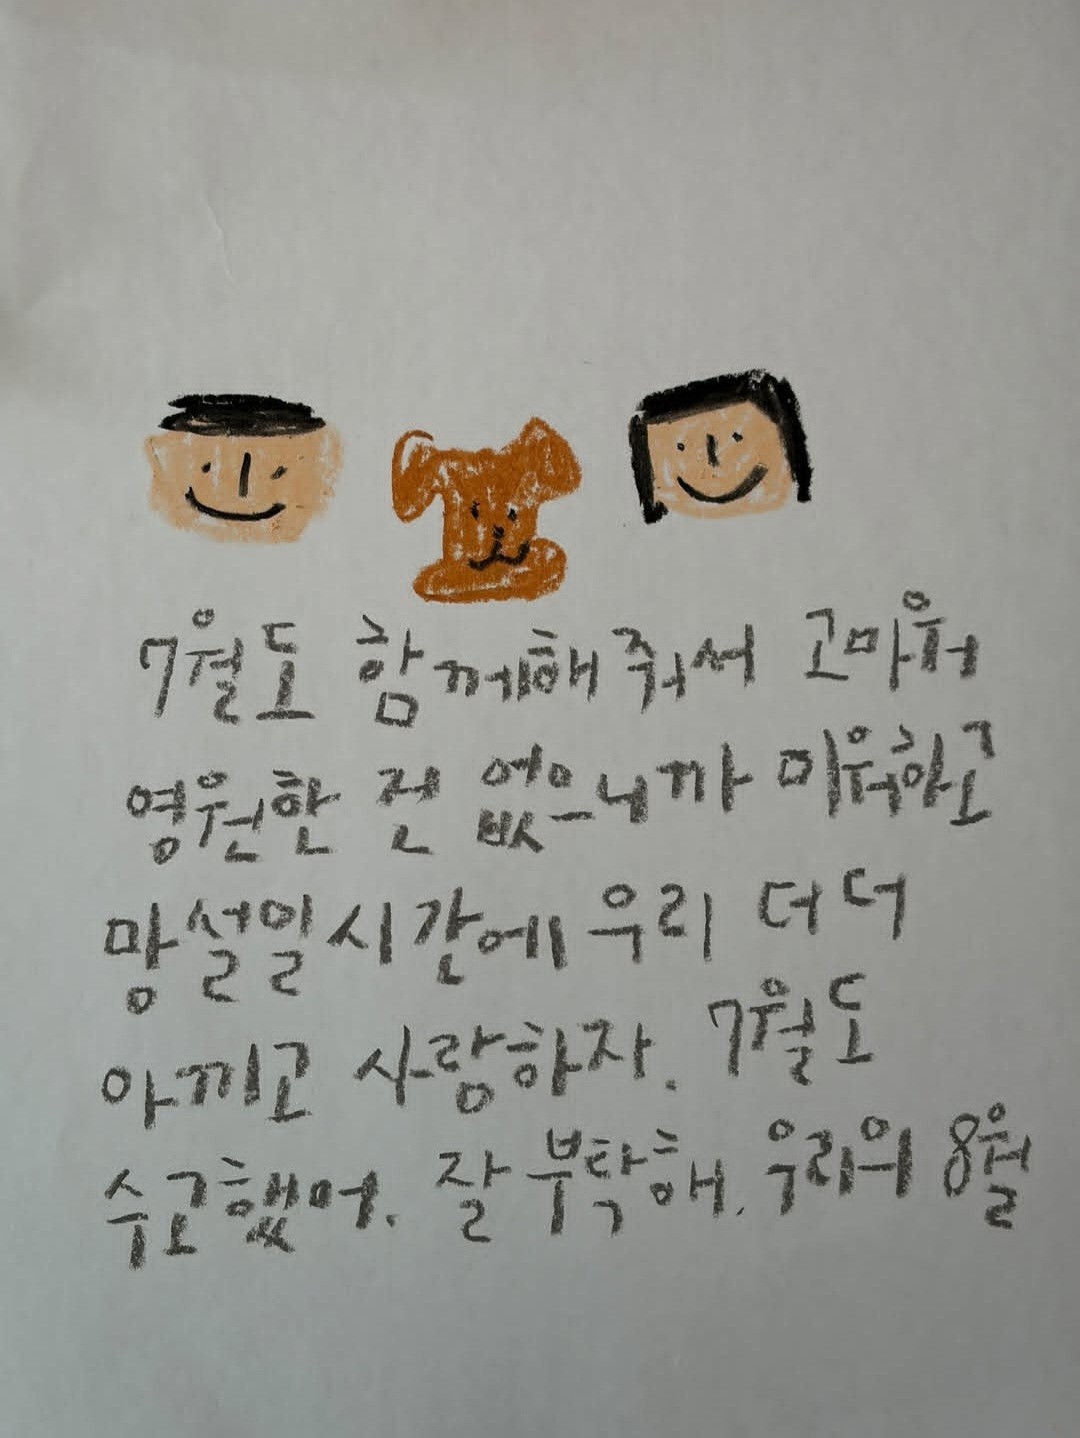 7월도 함께해줘서 고마워
영원한 건 없으니까 미워하고
망설일시간에 우리 더더
아끼고 사랑하자. 7월도
수고했어. 잘 부탁해. 우리의 8월